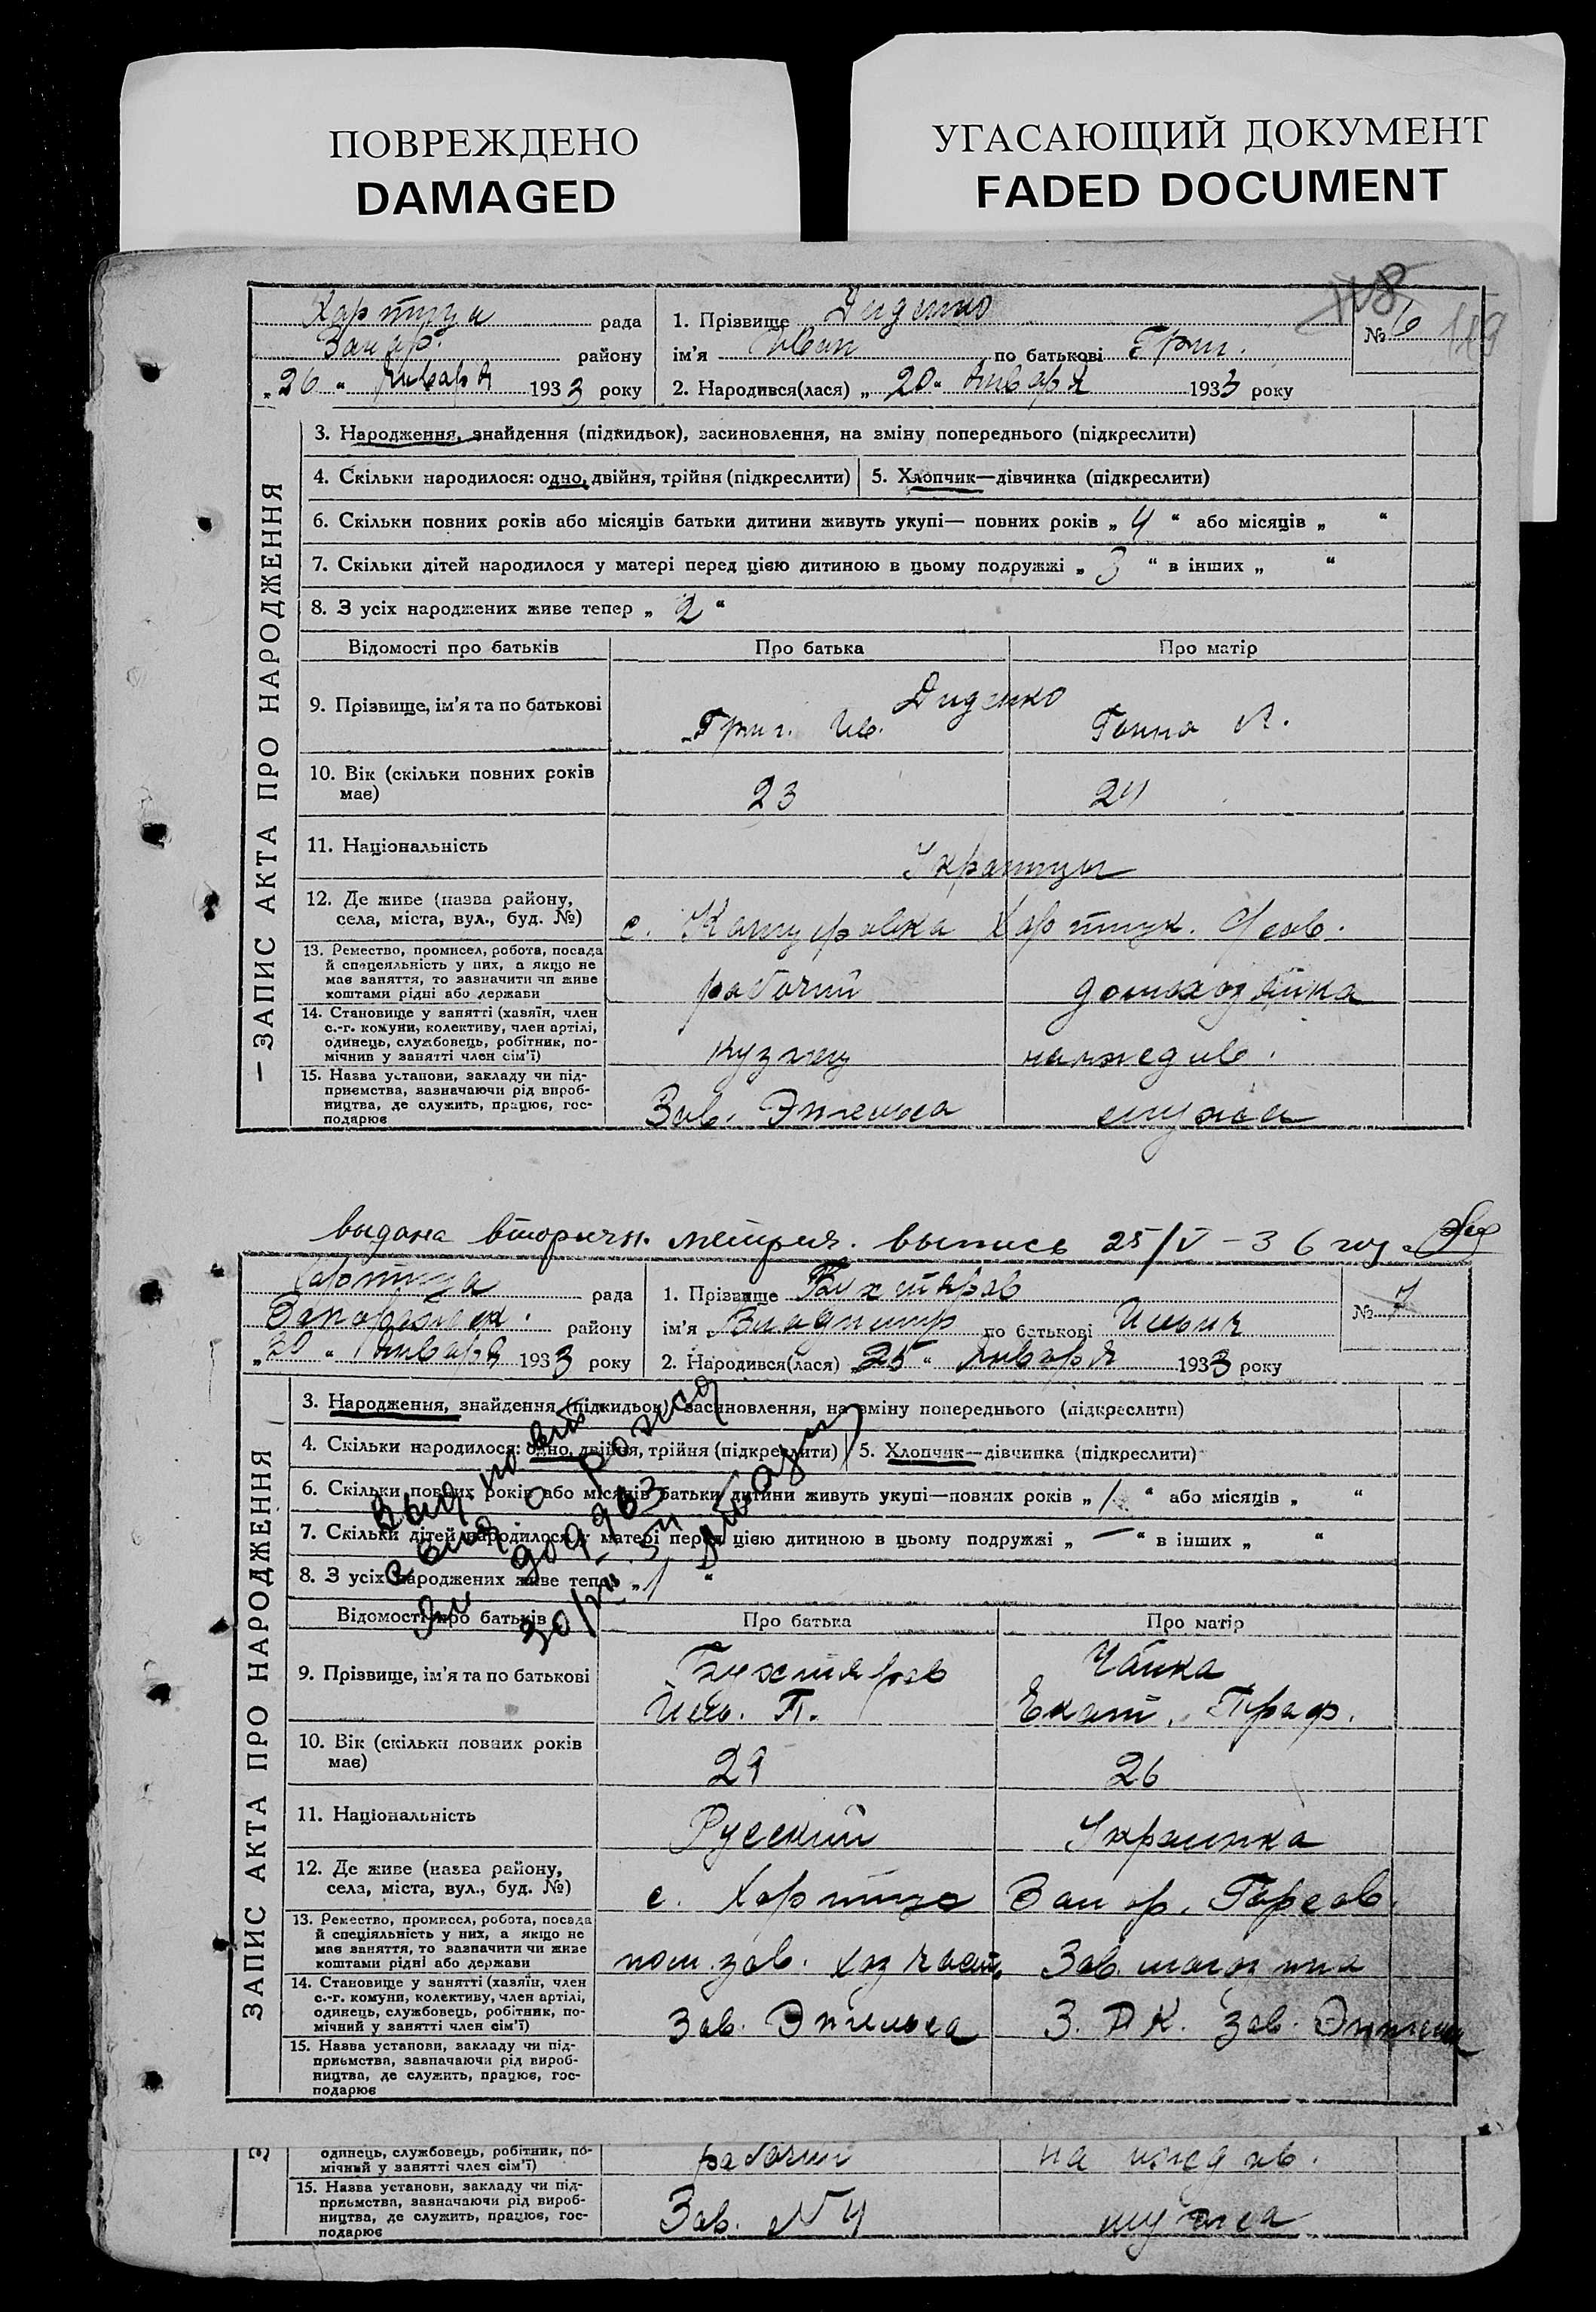 ПОВРЕЖДЕНО
DAMAGED
УГАСАЮЩИЙ ДОКУМЕНТ
FADED DOCUMENT
118
119
Хортица рада
Запор. району
„26“ января 1933 року
1. Прізвище Диденко
ім'я Иван по батькові Григ.
№ 6
2. Народився(лася) „20“ января 1933 року
ЗАПИС АКТА ПРО НАРОДЖЕННЯ
3. Народження, знайдення (підкидьок), засиновлення, на зміну попереднього (підкреслити)
4. Скільки народилося: одно, двійня, трійня (підкреслити)
5. Хлопчик—дівчинка (підкреслити)
6. Скільки повних років або місяців батьки дитини живуть укупі— повних років „ 4 “ або місяців „ “
7. Скільки дітей народилося у матері перед цією дитиною в цьому подружжі „ 3 “ в інших „ “
8. З усіх народжених живе тепер „ 2 “
Відомості про батьків Про батька Про матір
9. Прізвище, ім'я та по батькові
Диденко
Григ. Ив. Ганна
10. Вік (скільки повних років має)
23 24
11. Національність
Украинцы
12. Де живе (назва району, села, міста, вул., буд. №)
с. Хортицк.
13. Ремество, промисел, робота, посада й спецеяльність у них, а якщо не має заняття, то зазначити чи живе коштами рідні або держави
рабочий домохозяйка
14. Становище у занятті (хазяїн, член с.-г. комуни, колективу, член артілі, одинець, службовець, робітник, помічнив у занятті член сім'ї)
кузнец на иждив.
15. Назва установи, закладу чи підприємства, зазначаючи рід виробництва, де служить, працює, господарює
Зав. Энгельса мужа
выдана вторичн. метрич. выпись 25/V–36 год.
Хортица рада
Запорожск. району
января 1933 року
1. Прізвище Бухтяров
ім'я Владимир по батькові Ильич
№ 7
2. Народився(лася) „25“ января 1933 року
ЗАПИС АКТА ПРО НАРОДЖЕННЯ
3. Народження, знайдення (підкидьок), засиновлення, на зміну попереднього (підкреслити)
4. Скільки народилося: одно, двійня, трійня (підкреслити)
5. Хлопчик—дівчинка (підкреслити)
6. Скільки повних років або місяців батьки дитини живуть укупі—повних років „ 1 “ або місяців „ “
7. Скільки дітей народилося у матері перед цією дитиною в цьому подружжі „ — “ в інших „ “
8. З усіх народжених живе тепер „ 1 “
Выд. повт.
свид. о рожд
Відомості про батьків Про батька Про матір
9. Прізвище, ім'я та по батькові
Бухтяров Чайка
Илья П. Екат.
10. Вік (скільки повних років має)
29 26
11. Національність
Русский Украинка
12. Де живе (назва району, села, міста, вул., буд. №)
с. Хортица Запор. Горсов.
13. Ремество, промисел, робота, посада й спеціяльність у них, а якщо не має заняття, то зазначити чи живе коштами рідні або держави
пом. зав. хоз. част. Зав. магазина
14. Становище у занятті (хазяїн, член с.-г. комуни, колективу, член артілі, одинець, службовець, робітник, помічний у занятті член сім'ї)
Зав. Энгельса З. Р. К. зав. Энгельса
15. Назва установи, закладу чи підприємства, зазначаючи рід виробництва, де служить, працює, господарює
одинець, службовець, робітник, помічний у занятті член сім'ї)
рабочий на иждив.
15. Назва установи, закладу чи підприємства, зазначаючи рід виробництва, де служить, працює, господарює
Зав. № 4 мужа